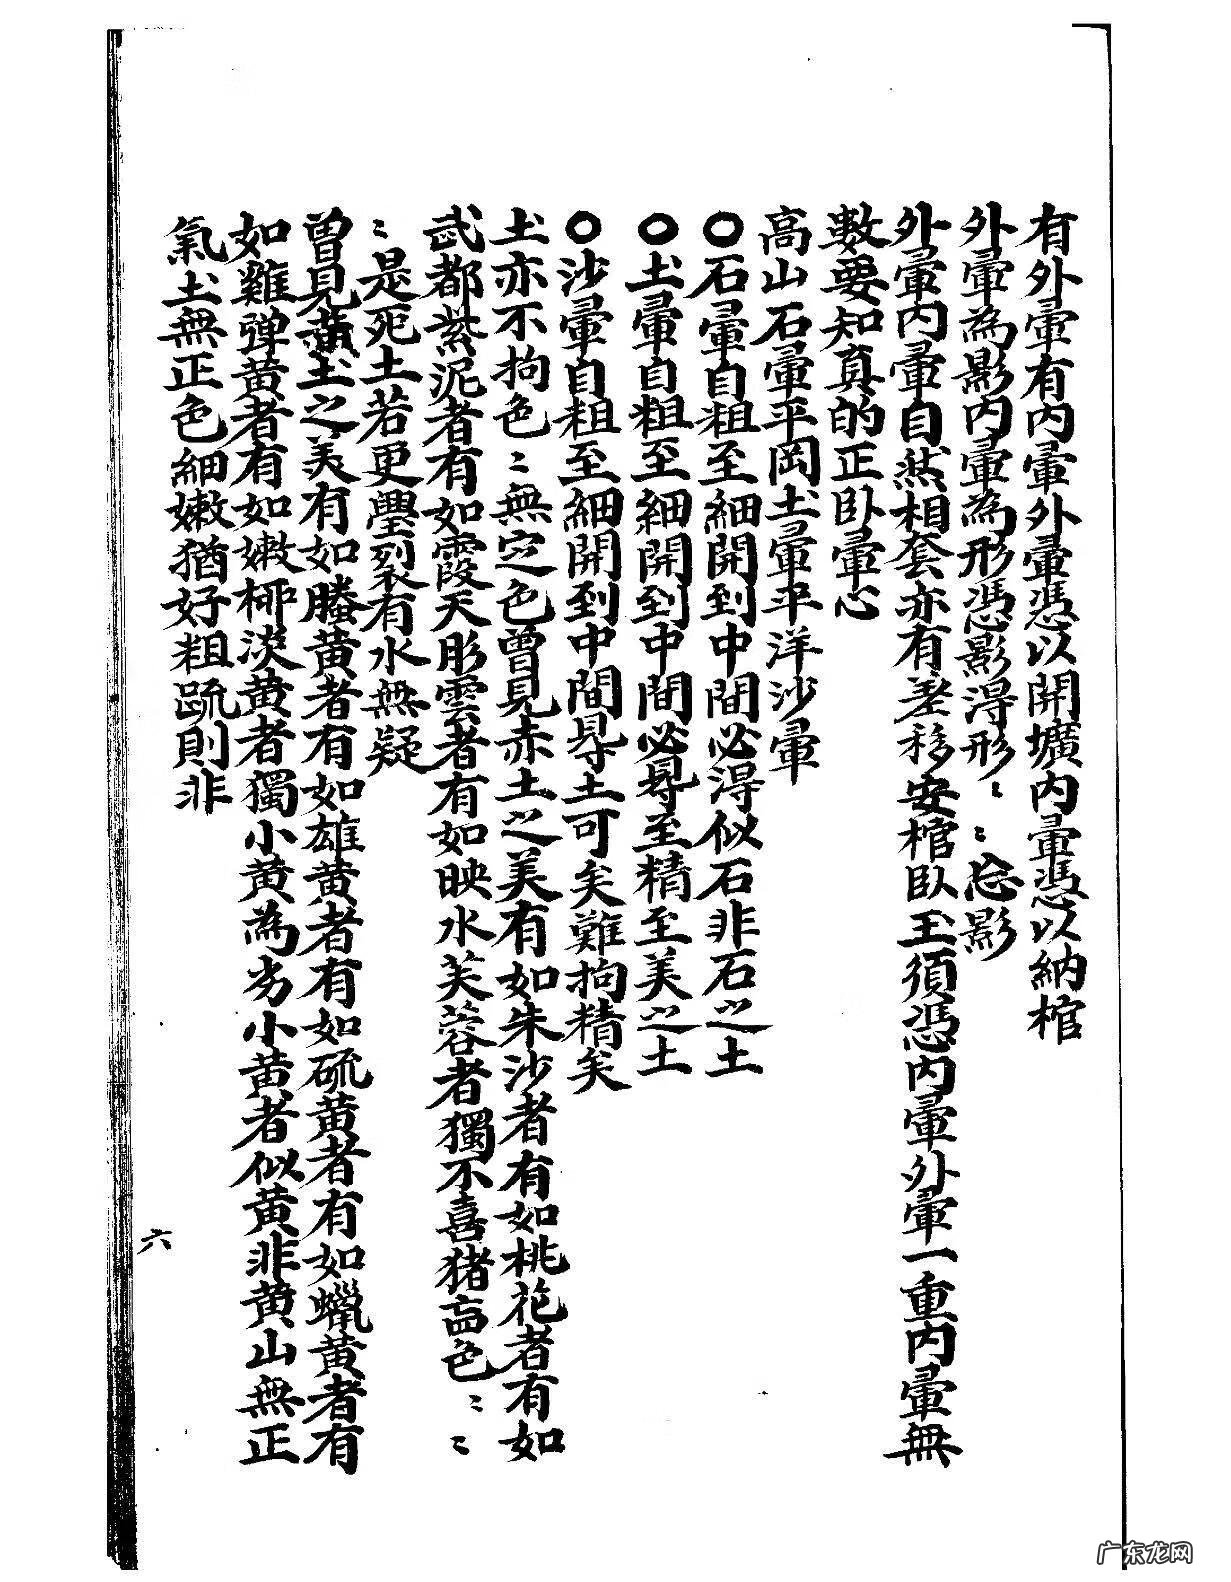 有外暈有内暈外暈憑以開壙内暈憑以納棺
外暈為影内暈為形憑影得形〻〻忘影
外暈内暈自然相套亦有差移安棺臥玉須憑内暈外暈一重内暈無
數要知真的正卧暈心
高山石暈平岡土暈平洋沙暈
〇石暈自粗至細開到中間必得似石非石之土
〇土暈自粗至細開到中間必尋至精至美之土
〇沙暈自粗至細開到中間尋土可矣難拘精矣
土亦不拘色〻無定色曾見赤土之美有如朱沙者有如桃花者有如
武都紫泥者有如霞天彤雲者有如映水芙蓉者獨不喜猪衁色〻〻
〻是死土若更璺裂有水無疑
曾見黄土之美有如螣黄者有如雄黄者有如硫黄者有如蠟黄者有
如雞弹黄者有如嫩栁淡黄者獨小黄為劣小黄者似黄非黄山無正
氣土無正色細嫩猶好粗䟽則非
六
广东龙网